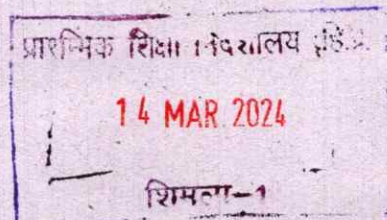 प्रारम्भिक शिक्षा निदेशालय हि.प्र.
14 MAR 2024
शिमला-1